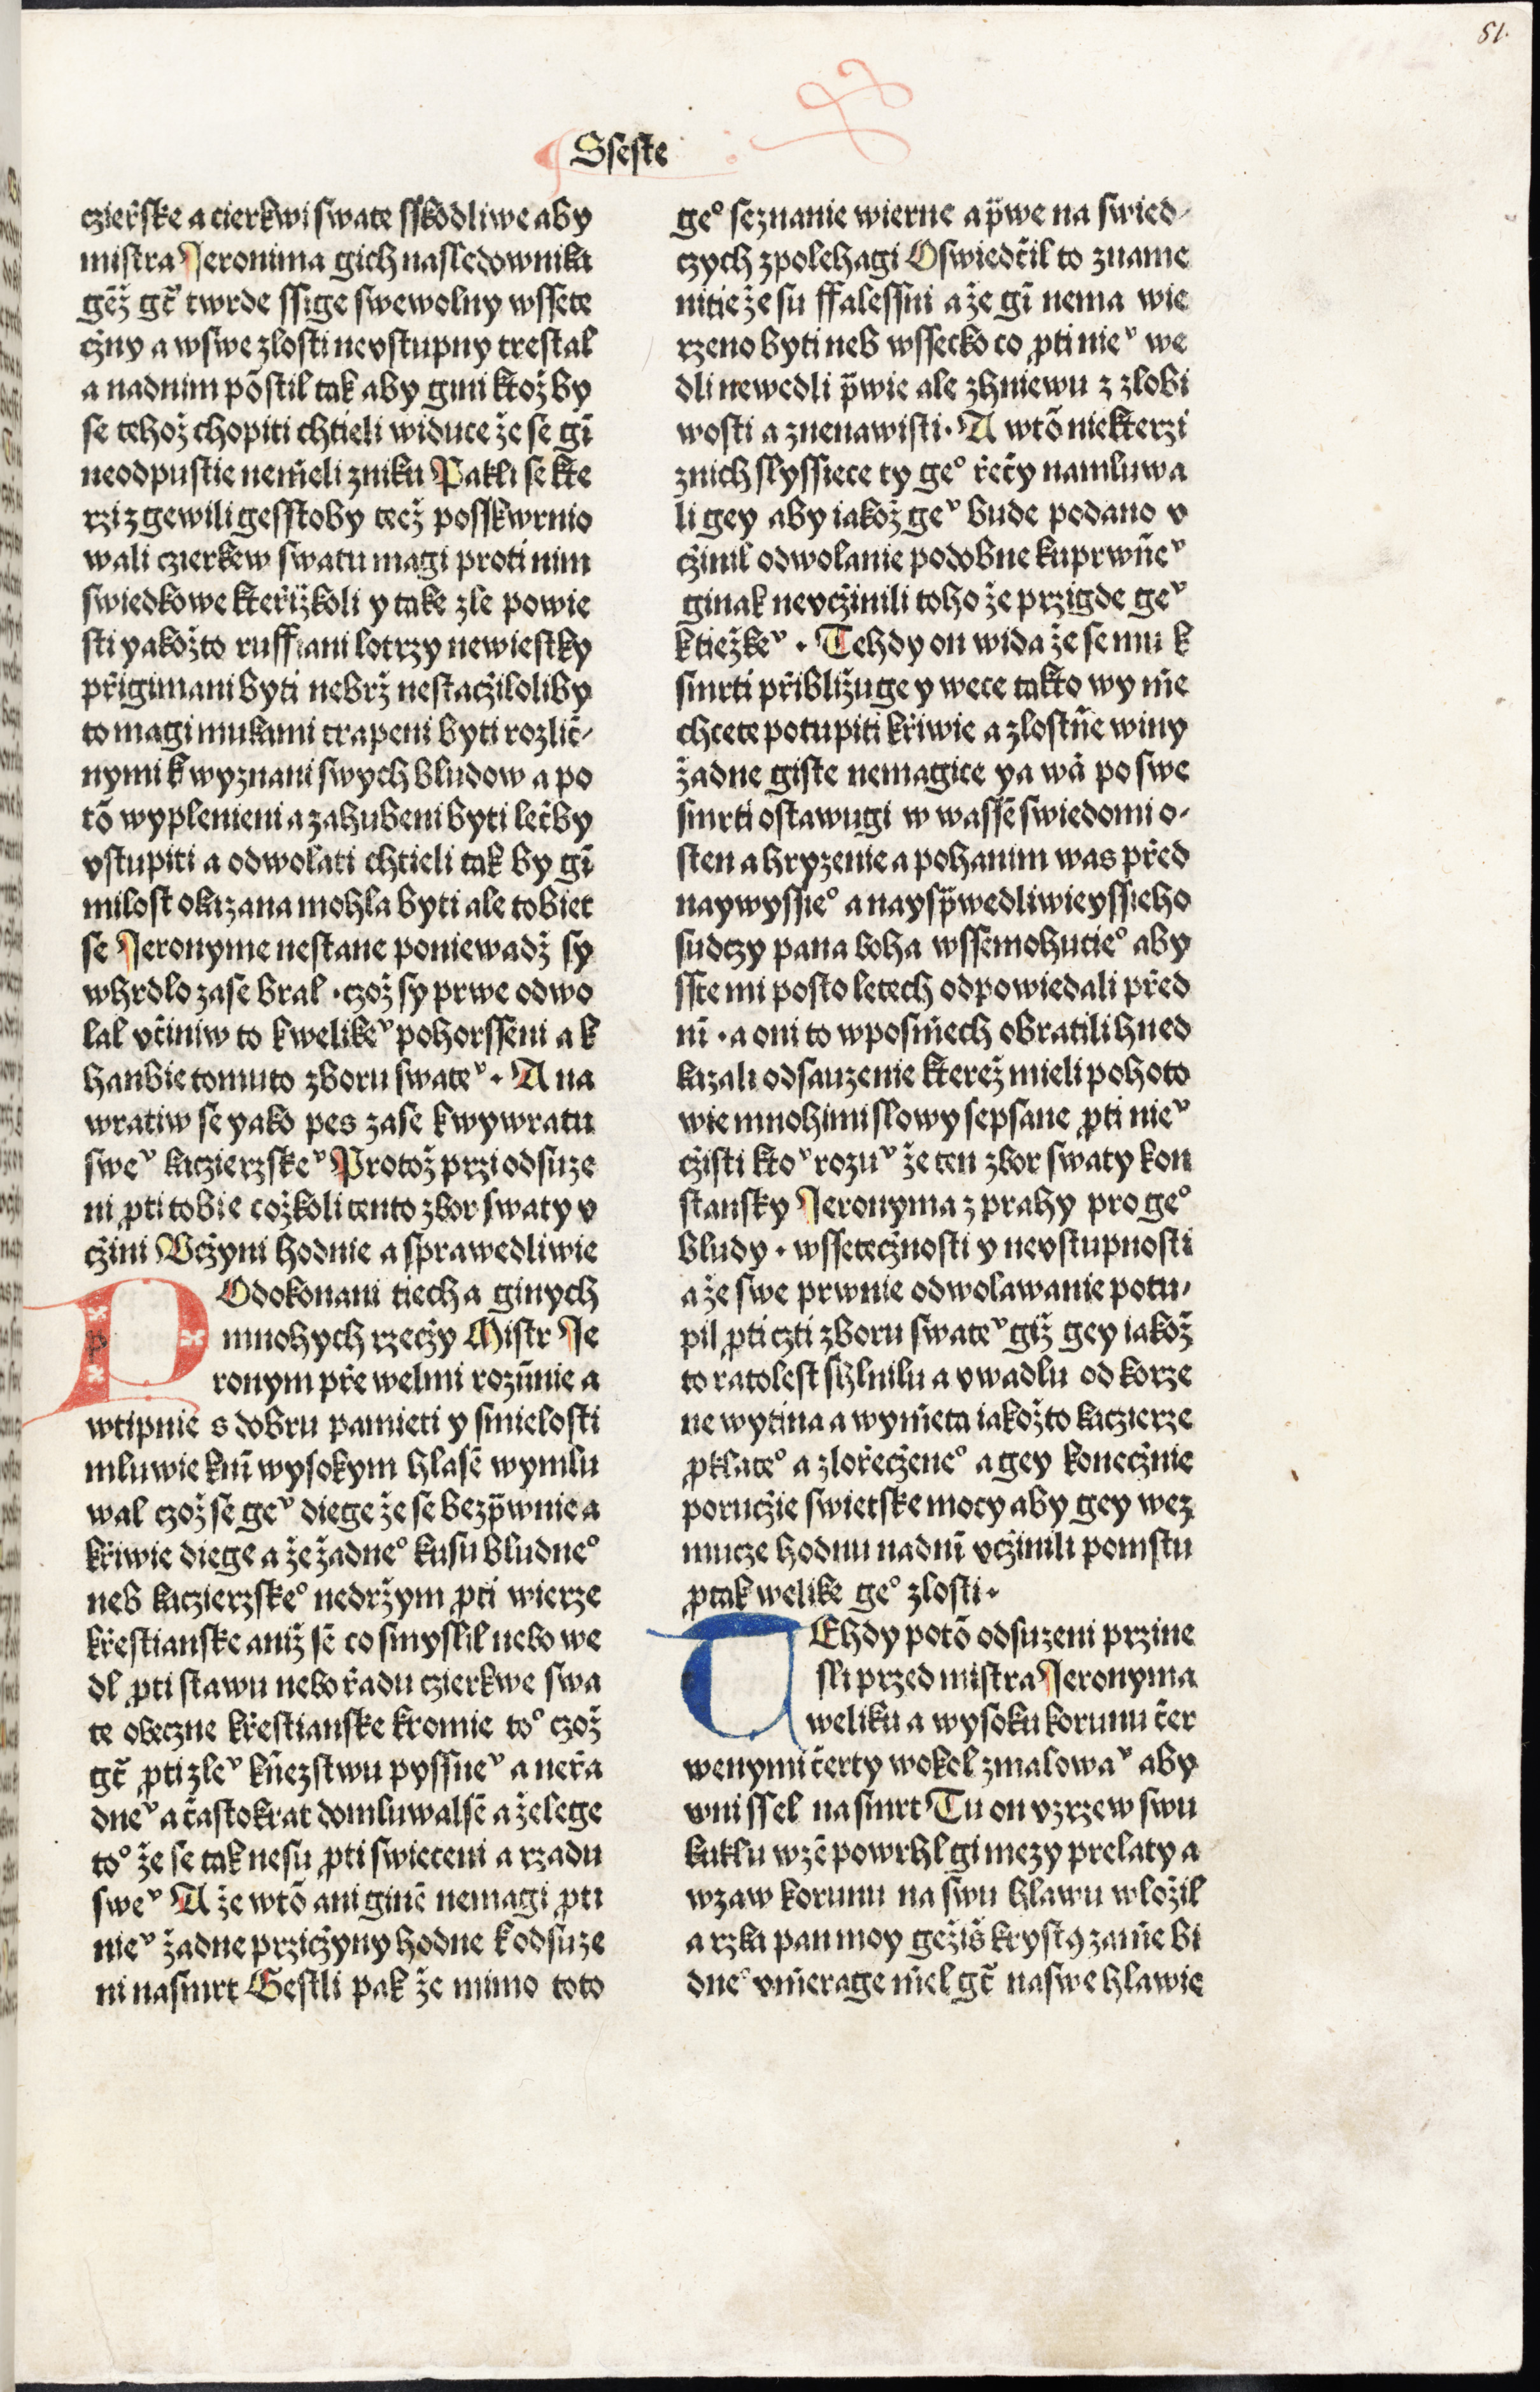 51.
Sseste
czieřske a cierkwi swate sskodliwe aby
mistra Jeronima gich nasledownika
gēž gt̄ twrde ssige swewolny wssete
čzny a wswe zlosti nevstupny trestal
a nadnim põstil tak aby gini ktož by
se tehož chopiti chtieli widuce že se gī
neodpustie nem̄eli zniku Pakli se kte
rzi zgewili gesstoby teež posskwrnio
wali czierkew swatu magi proti nim
swiedkowe kteřižkoli y take zle powie
sti yakožto ruffiani lotrzy newiestky
přigimani byti nebrž nestačziloliby
to magi mukami trapeni byti rozlič⸗
nymi k wyznani swych bludow a po
tõ wyplenieni a zahubeni byti lečby
vstupiti a odwolati chtieli tak by gī
milost okazana mohla byti ale tobiet
se Jeronyme nestane poniewadž sy
whrdlo zase bral · czož sy prwe odwo
lal včiniw to kwelikeͮ pohorssēni a k
hanbie tomuto zboru swateͮ · A na
wratiw se yako pes zase kwywratu
sweͮ kaczierzskeͮ Protož przi odsuze
ni ꝓti tobie cožkoli tento zbor swaty v
čzini Včzyni hodnie a sprawedliwie
POdokonani tiech a ginych
mnohych rzečzy Mistr Je
ronym pře welmi rozūnie a
wtipnie s dobru pamieti y smielosti
mluwie knī wysokym hlasē wymlu
wal czož se geͮ diege že se bezp̈wnie a
křiwie diege a že žadne° kusu bludne°
neb kaczierzske° nedržym ꝓti wierze
křestianske aniž sē co smyslil nebo we
dl ꝓti stawu nebo řadu czierkwe swa
te obeczne křestianske kromie to° czož
gt̄ ꝓti zleͮ kn̄ezstwu pyssneͮ a neřa
dneͮ a častokrat domluwal sē a želege
to° že se tak nesu ꝓti swieceni a rzadu
sweͮ A že wtõ ani ginē nemagi ꝓti
nieͮ žadne przičzyny hodne kodsuze
ni nasmrt Gestli pak že mimo toto
ge° seznanie wierne a p̈we na swied⸗
czych zpolehagi Oswiedčil to zname
nitie že su ffalessni a že gī nema wie
rzeno byti neb wssecko co ꝓti nieͮ we
dli newedli p̈wie ale zhniewu z zlobi
wosti a znenawisti · A wtõ niekterzi
znich slyssiece ty ge° řečy namluwa
li gey aby iakož geͮ bude podano v
čzinil odwolanie podobne kuprwn̄eͮ
ginak nevčzinili toho že przigde geͮ
ktiežkeͮ · Tehdy on wida že se mu k
smrti přibližuge y wece takto wy m̄e
chcete potupiti křiwie a zlostn̄e winy
žadne giste nemagice ya wā po swe
smrti ostawugi w wassē swiedomi o⸗
sten a hryzenie a pohanim was před
naywyssie° a naysp̈wedliwieyssieho
sudczy pana boha wssemohucie° aby
sste mi posto letech odpowiedali před
nī · a oni to wposm̄ech obratili hned
kazali odsauzenie kterež mieli pohoto
wie mnohimi slowy sepsane ꝓti nieͮ
čzisti ktoͮ rozuͮ že ten zbor swaty kon
stansky Jeronyma z prahy pro ge°
bludy · wssetečznosti y nevstupnosti
a že swe prwnie odwolawanie potu⸗
pil ꝓti czti zboru swateͮ giž gey iakož
to ratolest sħlnilu a vwadlu od korze
ne wytina a wym̄eta iakožto kaczierze
ꝓklate° a zlořečzene° a gey konečznie
poručzie swietske mocy aby gey wez
mucze hodnu nadnī včzinili pomstu
ꝓtak welike ge° zlosti ·
TEhdy potõ odsuzeni przine
sli przed mistra Jeronyma
weliku a wysoku korunu čer
wenymi čerty wokol zmalowaͮ aby
wni ssel na smrt Tu on vzrzew swu
kuklu wzē powrhl gi mezy prelaty a
wzaw korunu na swu hlawu wložil
a rzka pan moy gežiš krystꝰ zam̄e bi
dneͮ vm̄erage m̄el gt̄ naswe hlawie